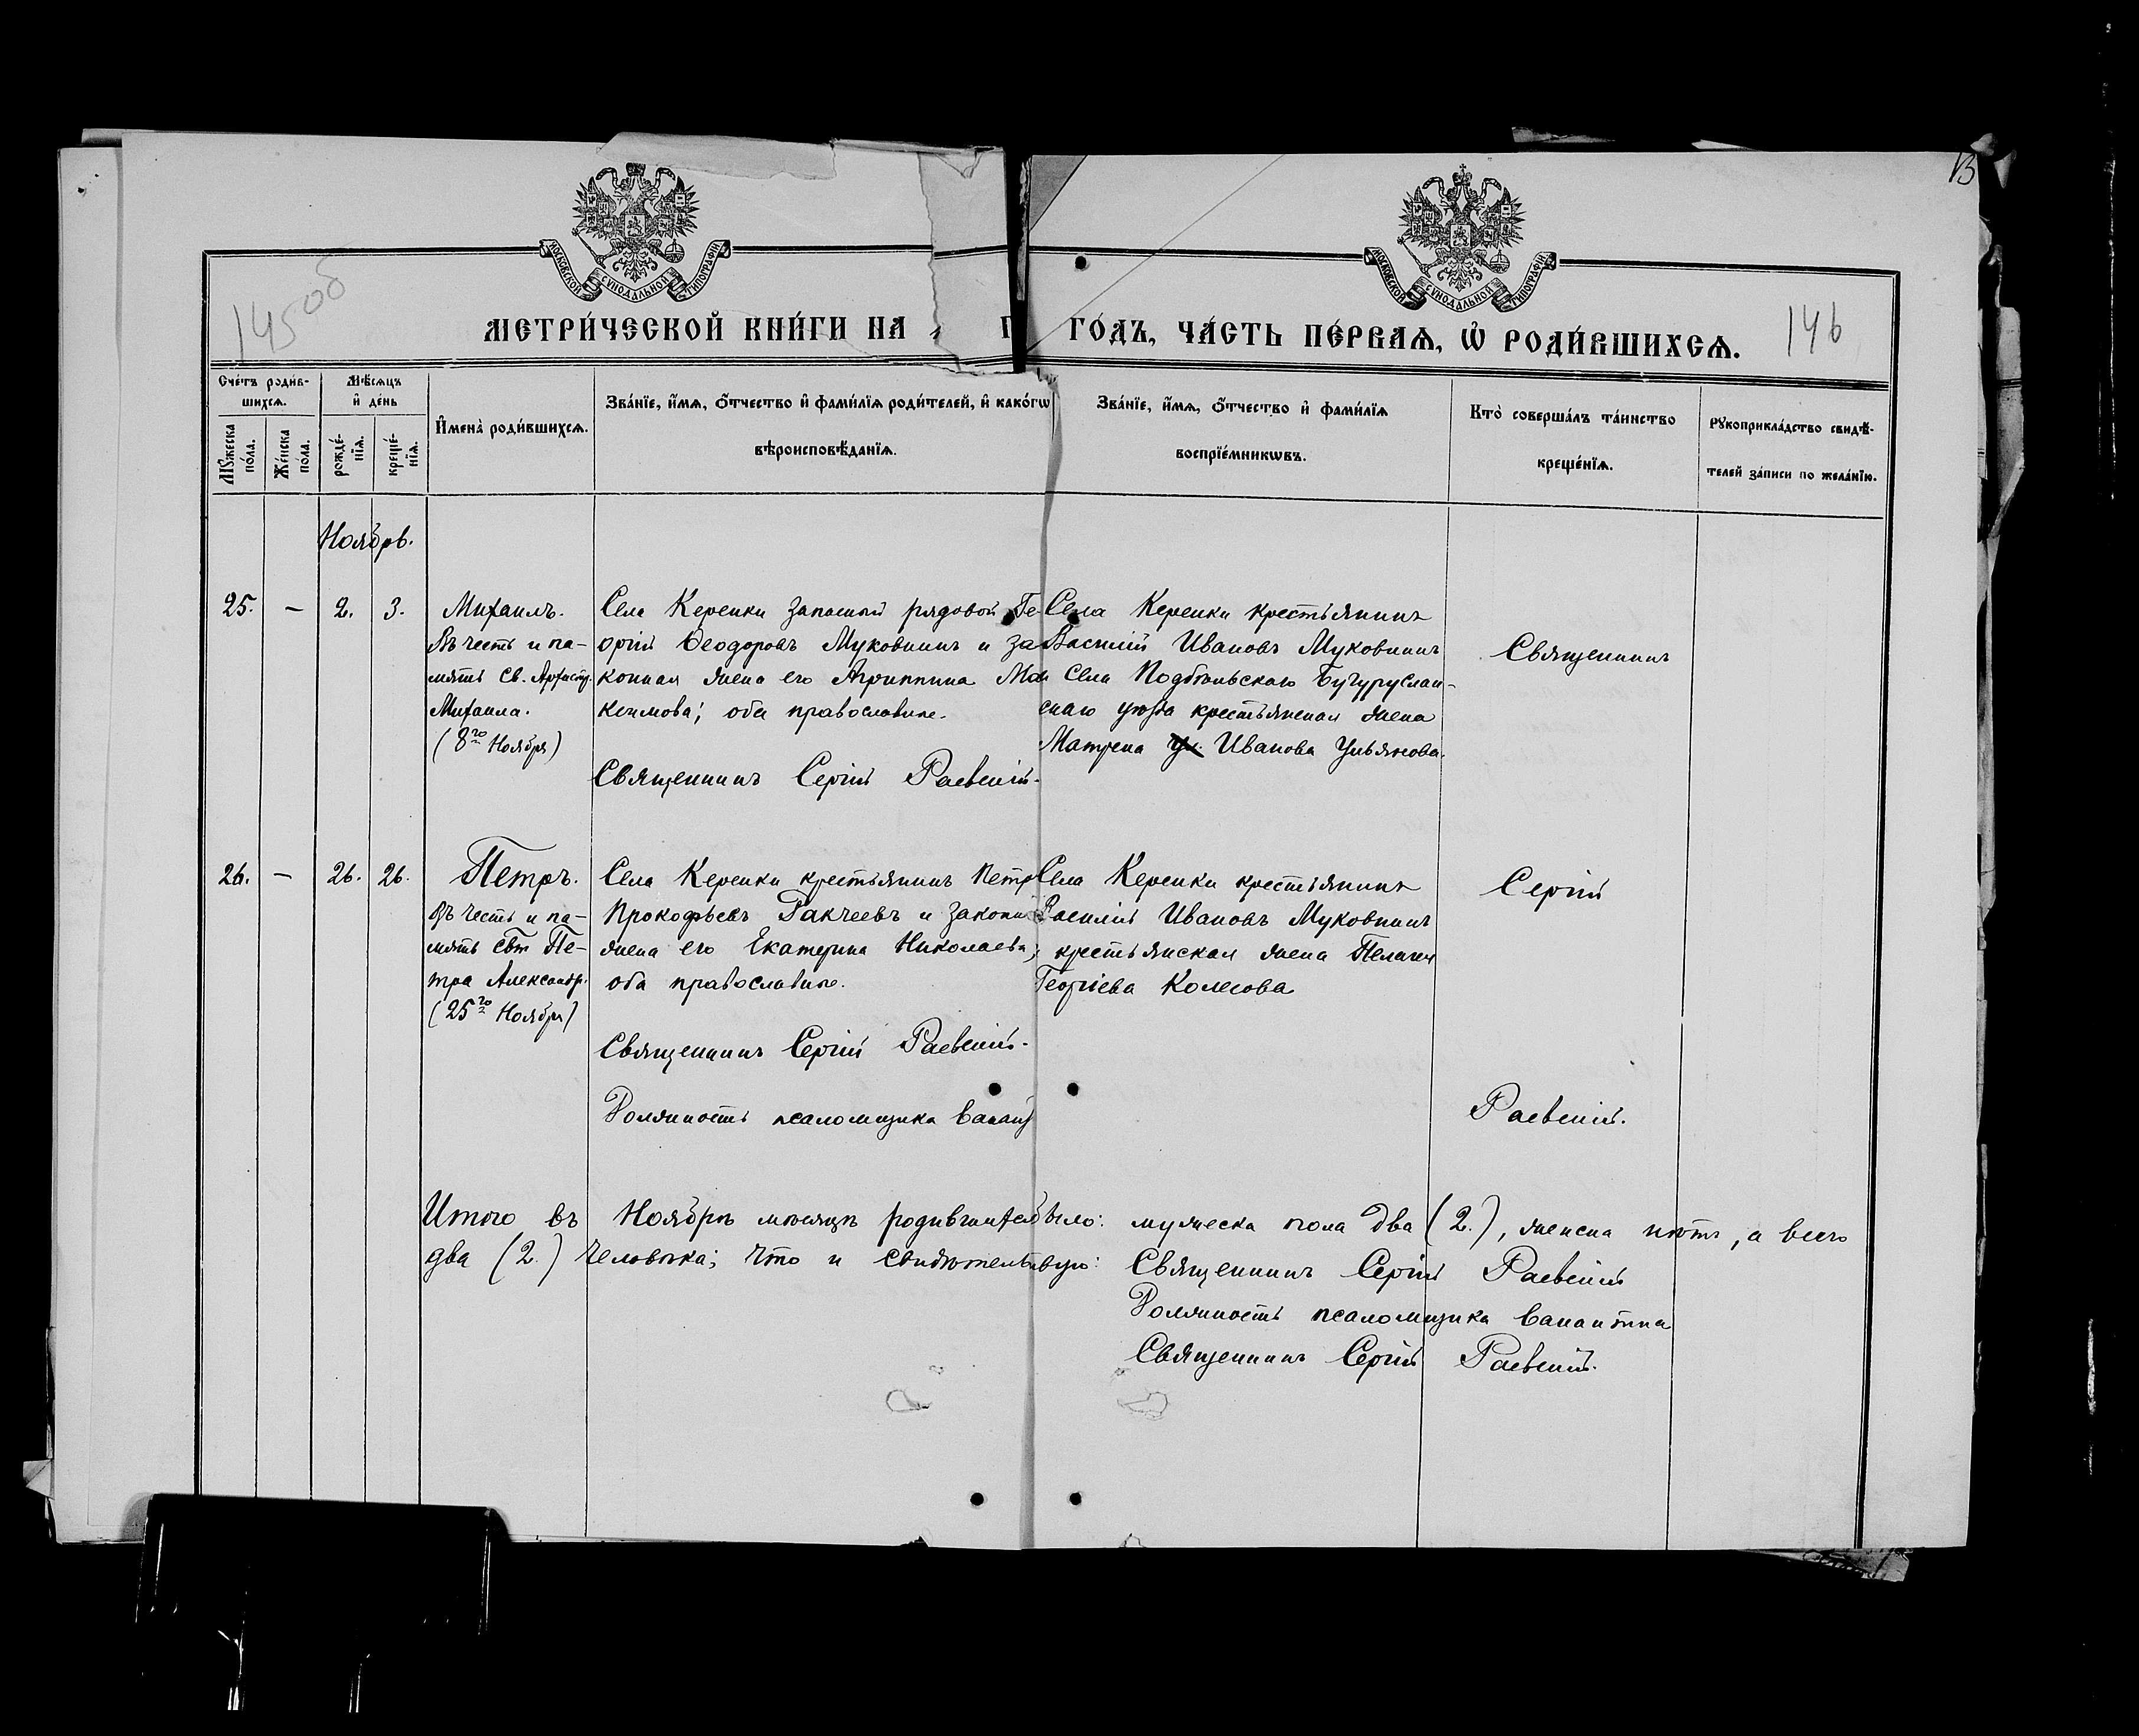 13
МОСКОВСКОЙ СѴНОДАЛЬНОЙ ТИПОГРАФІИ
МОСКОВСКОЙ СѴНОДАЛЬНОЙ ТИПОГРАФІИ
145 об
146
МЕТРИ́ЧЕСКОЙ КНИ́ГИ НА ГО́ДЪ, ЧА́СТЬ ПЕ́РВАѦ, Ѡ҆ РОДИ́ВШИХСѦ.
Сче́тъ роди́в-
шихсѧ.
Мѣ́сѧцъ
и҆ де́нь
Мꙋ́жеска
по́ла.
Же́нска
по́ла.
рожде́-
нїѧ.
креще́-
нїѧ.
И҆мена̀ роди́вшихсѧ.
Зва́нїе, и҆́мѧ, ѻ҆́тчество и҆ фами́лїѧ роди́телей, и҆ како́гѡ
вѣроисповѣ́данїѧ.
Зва́нїе, и҆́мѧ, ѻ҆́тчество и҆ фами́лїѧ
воспрїе́мникѡвъ.
Кто̀ соверша́лъ та́инство
креще́нїѧ.
Рꙋкоприкла́дство свидѣ́-
телей за́писи по жела́нїю.
Ноябрь.
25. — 2. 3.
Михаилъ.
Въ честь и па-
мять Св. Архистр.
Михаила.
(8го Ноября)
Села Керенки запасный рядовой Ге-
оргій Ѳеодоровъ Муковнинъ и за
конная жена его Агриппина Ма
ксимова; оба православные.
Священникъ Сергій Раевскій.
Села Керенки крестьянинъ
Василій Ивановъ Муковнинъ
и села Подбѣльскаго Бугуруслан-
скаго уѣзда крестьянская жена
Матрена Иванова Ульянова.
Священникъ
26. — 26. 26.
Петръ.
Въ честь и па-
мять Свт Пе-
тра Александр.
(25го Ноября)
Села Керенки крестьянинъ Петр
Прокофьевъ Ракчеевъ и законн
жена его Екатерина Николаева;
оба православные.
Священникъ Сергій Раевскій.
Должность псаломщика вакант
Села Керенки крестьянинъ
Василій Ивановъ Муковнинъ
и крестьянская жена Пелагея
Георгіева Колесова
Сергій
Раевскій.
Итого въ Ноябрѣ мѣсяцѣ родившихся было: мужеска пола два (2.), женска нѣтъ, а всего
два (2.) человѣка; что и свидѣтельствую: Священникъ Сергій Раевскій
Должность псаломщика вакантна
Священникъ Сергій Раевскій.